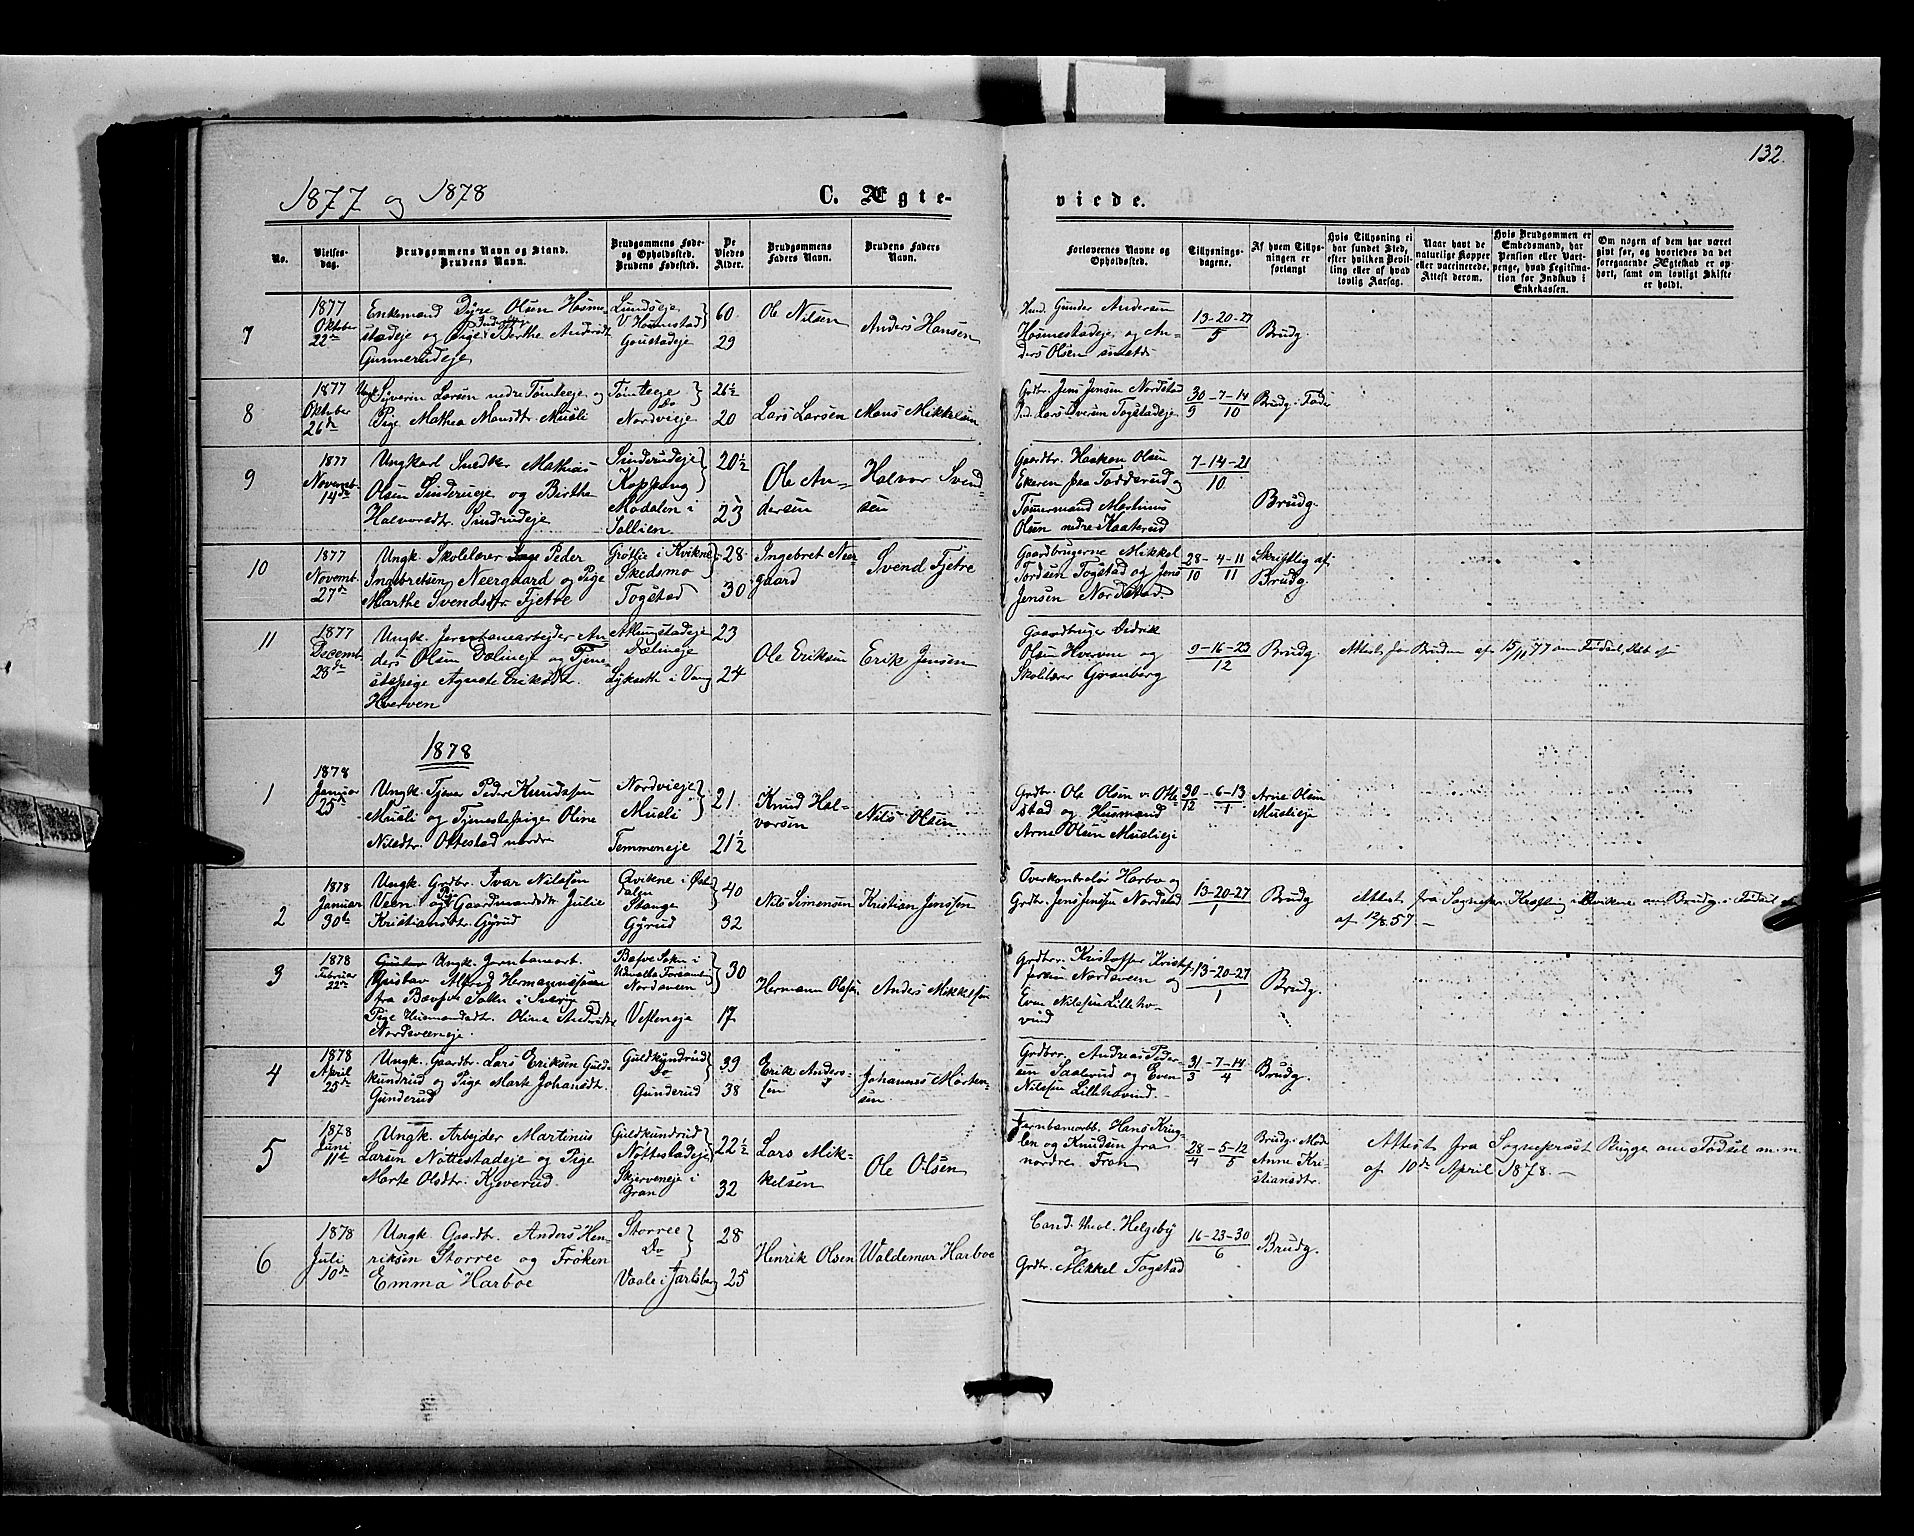 132.
1877 og 1878
C. Ægte-
viede.
No.
Vielses-
dag.
Brudgommens Navn og Stand.
Brudens Navn.
Brudgommens Føde-
og Opholdssted.
Brudens Fødested.
De
Viedes
Alder.
Brudgommens
Faders Navn.
Brudens Faders
Navn.
Forlovernes Navne og
Opholdssted.
Tillysnings-
dagene.
Af hvem Tillys-
ningen er
forlangt
Hvis Tillysning ei
har fundet Sted,
efter hvilken Bevil-
ling eller af hvad
lovlig Aarsag.
Naar havt de
naturlige Kopper
eller vaccinerede.
Attest derom.
Hvis Brudgommen er
Embedsmand, har
Pension eller Vart-
penge, hvad Legitima-
tion for Indskud i
Enkekassen.
Om nogen af dem har været
givt før, og hvorledes da det
foregaaende Ægteskab er op-
hørt, samt om lovligt Skifte
er holdt.
7
1877
Oktober
22de
Enkemand Dyre Olsen Hosme-
stadeje og Pige Berthe Andersdt.
Gunnerudeje
Lundseje
V Hosmestad
Goustadeje
60
29
Ole Nilsen
Anders Hansen
Husm. Gunder Andersen
Hosmestadeje og An-
ders Olsen
13-20-27
5
Brudg.
8
1877
Oktober
26de
Ungk. Syverin Larsen nedre Tømteeje og
Pige Mathea Mansdt. Musli
Tømteeje
Do
Nordvieje
26½
20
Lars Larsen
Mans Mikkelsen
Grdbr. Jens Jensen Nordstad
Lars Iversen Togstadeje
30-7-14
9 10
Brudg. Fader
9
1877
Novemb.
14de
Ungkarl Snedker Mathias
Olsen Sindrueje og Birthe
Halvorsdt. Sindrudeje
Sindrudeje
Koppang
Modalen i
Sollien
20½
23
Ole An-
dersen
Halvor Svend-
sen
Gaardbr. Haaken Olsen
Ekeren fra Fodderud og
Tømmermand Martinus
Olsen nedre Kaaterud
7-14-21
10
Brudg.
10
1877
Novemb.
27de
Ungk. Skolelærer Peder
Ingebretsen Neergaard og Pige
Marthe Svendsdtr. Fjetre
Grøtlie i Kvikne
Skedsmo
Togstad
28
30
Ingebret Neer-
gaard
Svend Fjetre
Gaardbrugerne Mikkel
Tordsen Togstad og Jens
Jensen Nordstad.
28-4-11
10 11
Skriftlig af
Brudg.
11
1877
Decemb.
28de
Ungk. Jernbanearbejder An-
ders Olsen Dælineje og Tjene-
stepige Agnete Eriksdt.
Hverven
Atlungstadeje
Dælineje
Lykseth i Vang
23
24
Ole Eriksen
Erik Jensen
Gaardbruger Didrik
Olsen Hverven og
Skolelærer Granberg
9-16-23
12
Brudg.
Attest for Bruden af 15/11 77 om Fødsel, Daab
1878
1
1878
Januar
25de
Ungk. Tjener Peder Knudsen
Musli og Tjenestepige Oline
Nilsdtr. Ottestad nordre
Nordvieje
Musli
Temmeneje
21.
21½
Knud Hal-
vorsen
Nils Olsen
Grdbr. Ole Olsen v. Otte-
stad og Husmand
Arne Olsen Muslieje
30-6-13
12 1
Arne Olsen
Muslieje
2
1878
Januar
30te
Ungk. Grdbr. Ivar Nilssen
Veen og Gaardmandsdt. Julie
Kristiansdt. Gyrud
Qvikne i Øst.
dalen
Stange
Gyrud
40
32
Nils Simensen
Kristian Jenssen
Overkontrolør Harbo og
Grdbr. Jens Jensen Nordstad
13-20-27
1
Brudg
Attest fra Sognepr. Krefting i Kvikne om Brudg. Fødsel
af 12/8. 57 –
3
1878
Februar
22de
Gustav Ungk. Jernbanearb.
Gustav Alfred Hermannssen
fra Sverig
Pige Husmandsdt. Olina Andersdt.
Nordsveeneje.
Nordsveen
Vestleneje
30
17
Hermann Olssen
Anders Mikkelsen
Grdbr. Kristoffer Krist-
fersen Nordsveen og
Even Nilsen Lilleho-
vind
13-20-27
1
Brudg.
4
1878
April
25de
Ungk. Gaardbr. Lars Eriksen Guld-
kundrud og Pige Marte Johansdt.
Gunderud
Guldkundrud
Do
Gunderud
39
38
Erik Anders-
sen
Johannes Morten-
sen
Grdbr. Andreas Peder-
sen Saalerud og Even
Nilssen Lillehovind. –
31-7-14
3 4
Brudg.
5
1878
Juni
11te
Ungk. Arbejder Martinus
Larsen Nøttestadeje og Pige
Marte Olsdtr. Kjeverud.
Guldkundrud
Nøttestadeje
Skjerveneje i
Gran
22½
32
Lars Mik-
kelsen
Ole Olsen
Jernbanearb. Hans Krug-
len og Knudsen fra
nordre Fron
28-5-12
4 5
Brudg. Mod.
Anne Kri-
stiansdtr.
Attest fra Sogneprest Brugge om Fødsel m. m.
af 10de April 1878. –
6
1878
Juli
10de
Ungk Gaardbr. Anders Hen-
riksen Storree og Frøken
Emma Harboe
Storree
Do
Vaale i Jarlsberg
28
25
Henrik Olsen
Waldemar Harboe
Cand. theol. Helgeby
og
Grdbr. Mikkel Togstad
16-23-30
6
Brudg.